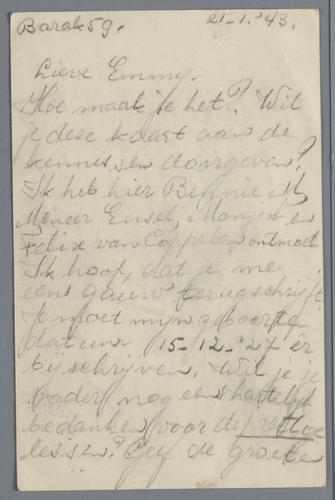 Barak 59. 21-1.'43.
Lieve Emmy.
Hoe maak je het? Wil
je deze kaart aan de
kennissen doorgeven?
Ik heb hier Bennie M,
Meneer Ensel, Monjen en
Felix van Coppelen ontmoet
Ik hoop, dat je me
eens gauw terugschrijft
Je moet mijn geboorte
datum 15-12-'27 er
bijschrijven. Wil je je
vader nog eens hartelijk
bedanken voor de
lessen? Geef de groeten